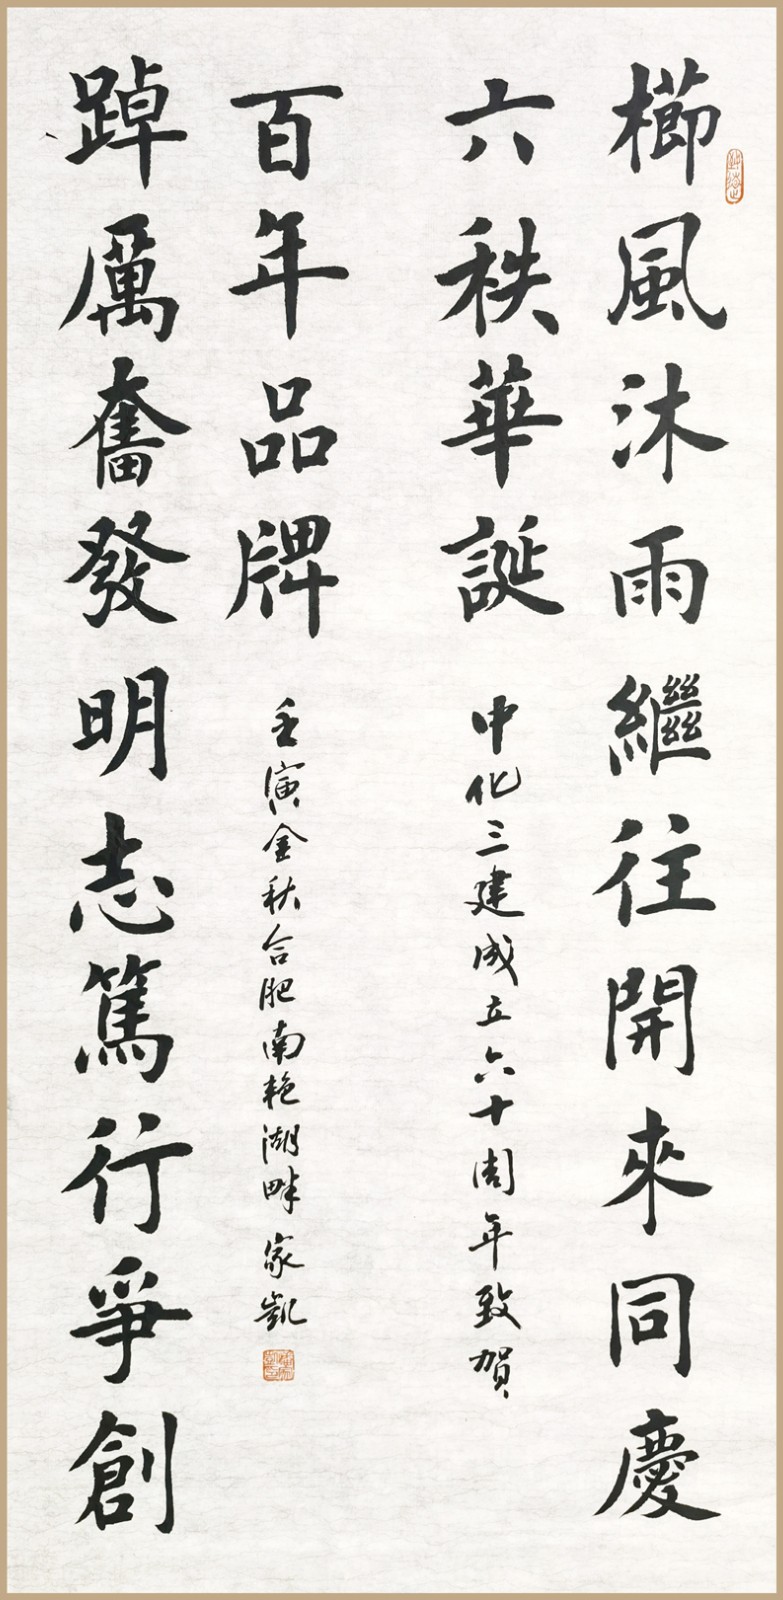 櫛風沐雨繼往開來同慶
六秩華誕
中化三建成立六十周年致賀
踔厲奮發明志篤行爭創
百年品牌
壬寅金秋合肥南艳湖畔家凱